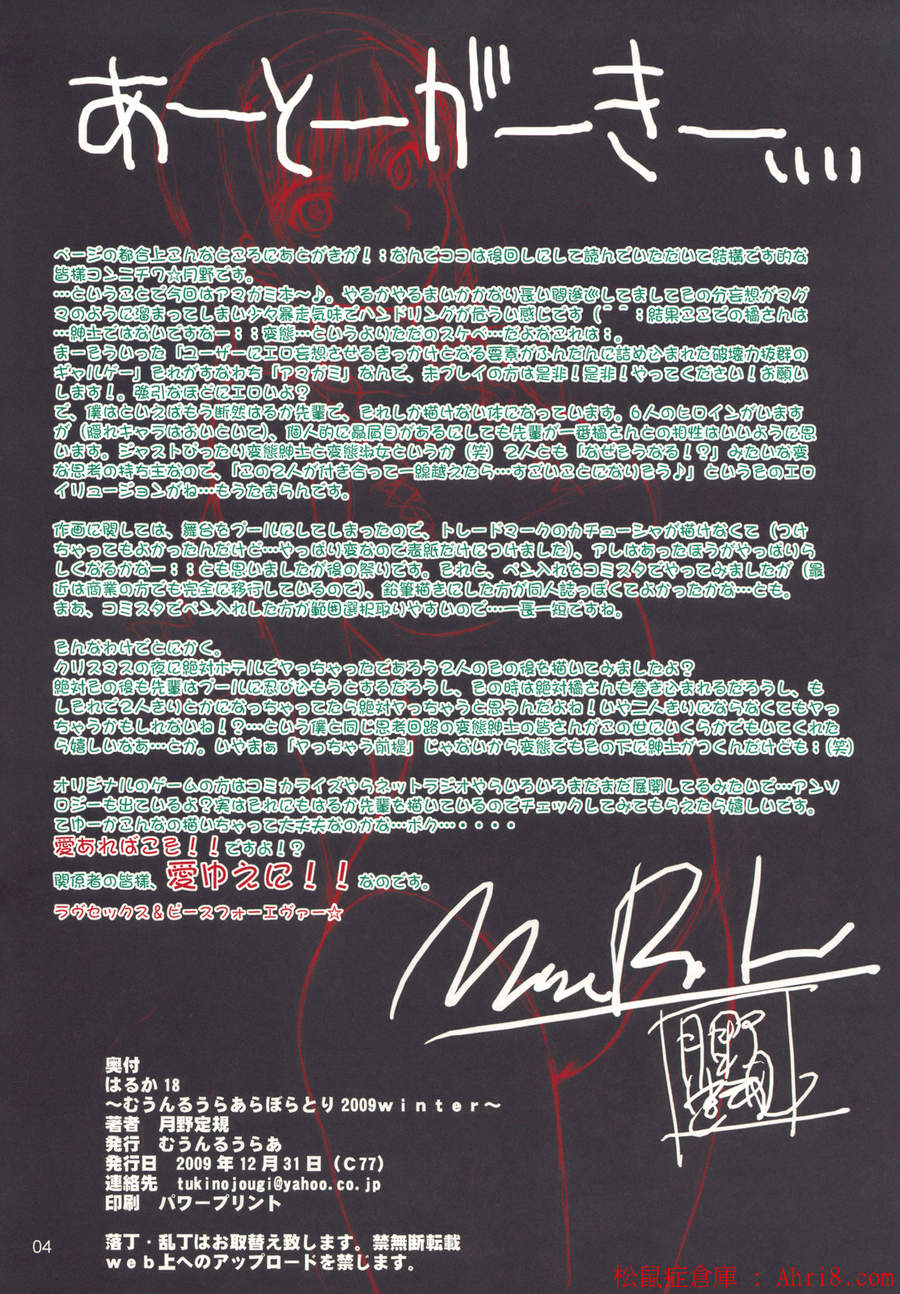 あーとーがーきー、、、、
ページの都合上こんなところにあとがきが！；なんでココは後回しにして読んでいただいて結構です的な
皆様コンニチワ☆月野です。
…ということで今回はアマガミ本～♪。やるかやるまいかかなり長い間逡巡してましてその分妄想がマグ
マのように溜まってしまい少々暴走気味でハンドリングが危うい感じです（＾＾；結果ここでの橘さんは
…紳士ではないですなー；；変態…というよりただのスケベ…だよなこれは；。
まーそういった「ユーザーにエロ妄想させるきっかけとなる要素がふんだんに詰めひまれた破壊力抜群の
ギャルゲー」それがすなわち「アマガミ」なんで、未プレイの方は是非！是非！やってください！お願い
します！。強引なほどにエロいよ？
で、僕はといえばもう断然はるか先輩で、それしか描けない体になっています。６人のヒロインがいます
が（隠れキャラはおいといて）、個人的に贔屓目があるにしても先輩が一番橘さんとの相性はいいように思
います。ジャストぴったり変態紳士と変態淑女というか（笑）２人とも「なぜそうなる！？」みたいな変
な思考の持ち主なので、「この２人が付き合って一線越えたら…すごいことになりそう♪」というそのエロ
イリュージョンがね…もうたまらんです。
作画に関しては、舞台をプールにしてしまったので、トレードマークのカチューシャが描けなくて（つけ
ちゃってもよかったんだけど…やっぱり変なので表紙だけにつけました）、アレはあったほうがやっぱりら
しくなるかなー；；とも思いましたが後の祭りです。それと、ペン入れをコミスタでやってみましたが（最
近は商業の方でも完全に移行しているので）、鉛筆描きにした方が同人誌っぽくてよかったかな…とも。
まあ、コミスタでペン入れした方が範囲選択取りやすいので…一長一短ですね。
そんなわけでとにかく。
クリスマスの夜に絶対ホテルでヤっちゃったであろう２人のその後を描いてみましたよ？
絶対その後も先輩はプールに忍びひもうとするだろうし、その時は絶対橘さんも巻きひまれるだろうし、も
しそれで２人きりとかになっちゃってたら絶対ヤっちゃうと思うんだよね！いや二人きりにならなくてもヤっ
ちゃうかもしれないね！？…という僕と同じ思考回路の変態紳士の皆さんがこの世にいくらかでもいてくれた
ら嬉しいなあ…とか。いやまぁ「ヤっちゃう前提」じゃないから変態でもその下に紳士がつくんだけども；（笑）
オリジナルのゲームの方はコミカライズやらネットラジオやらいろいろまだまだ展開してるみたいで…アンソ
ロジーも出ているよ？実はそれにもはるか先輩を描いているのでチェックしてみてもらえたら嬉しいです。
てゆーかこんなの描いちゃって大丈夫なのかな…ボク…・・・・
愛あればこそ！！ですよ！？
関係者の皆様、愛ゆえに！！なのです。
ラヴセックス＆ピースフォーエヴァー☆
奥付
はるか18
～むうんるうらあらぼらとり2009winter～
著者　月野定規
発行　むうんるうらあ
発行日　2009年12月31日（C77）
連絡先　tukinojougi@yahoo.co.jp
印刷　パワープリント
04
落丁・乱丁はお取替え致します。禁無断転載
web上へのアップロードを禁じます。
松鼠症倉庫 : Ahri8.com